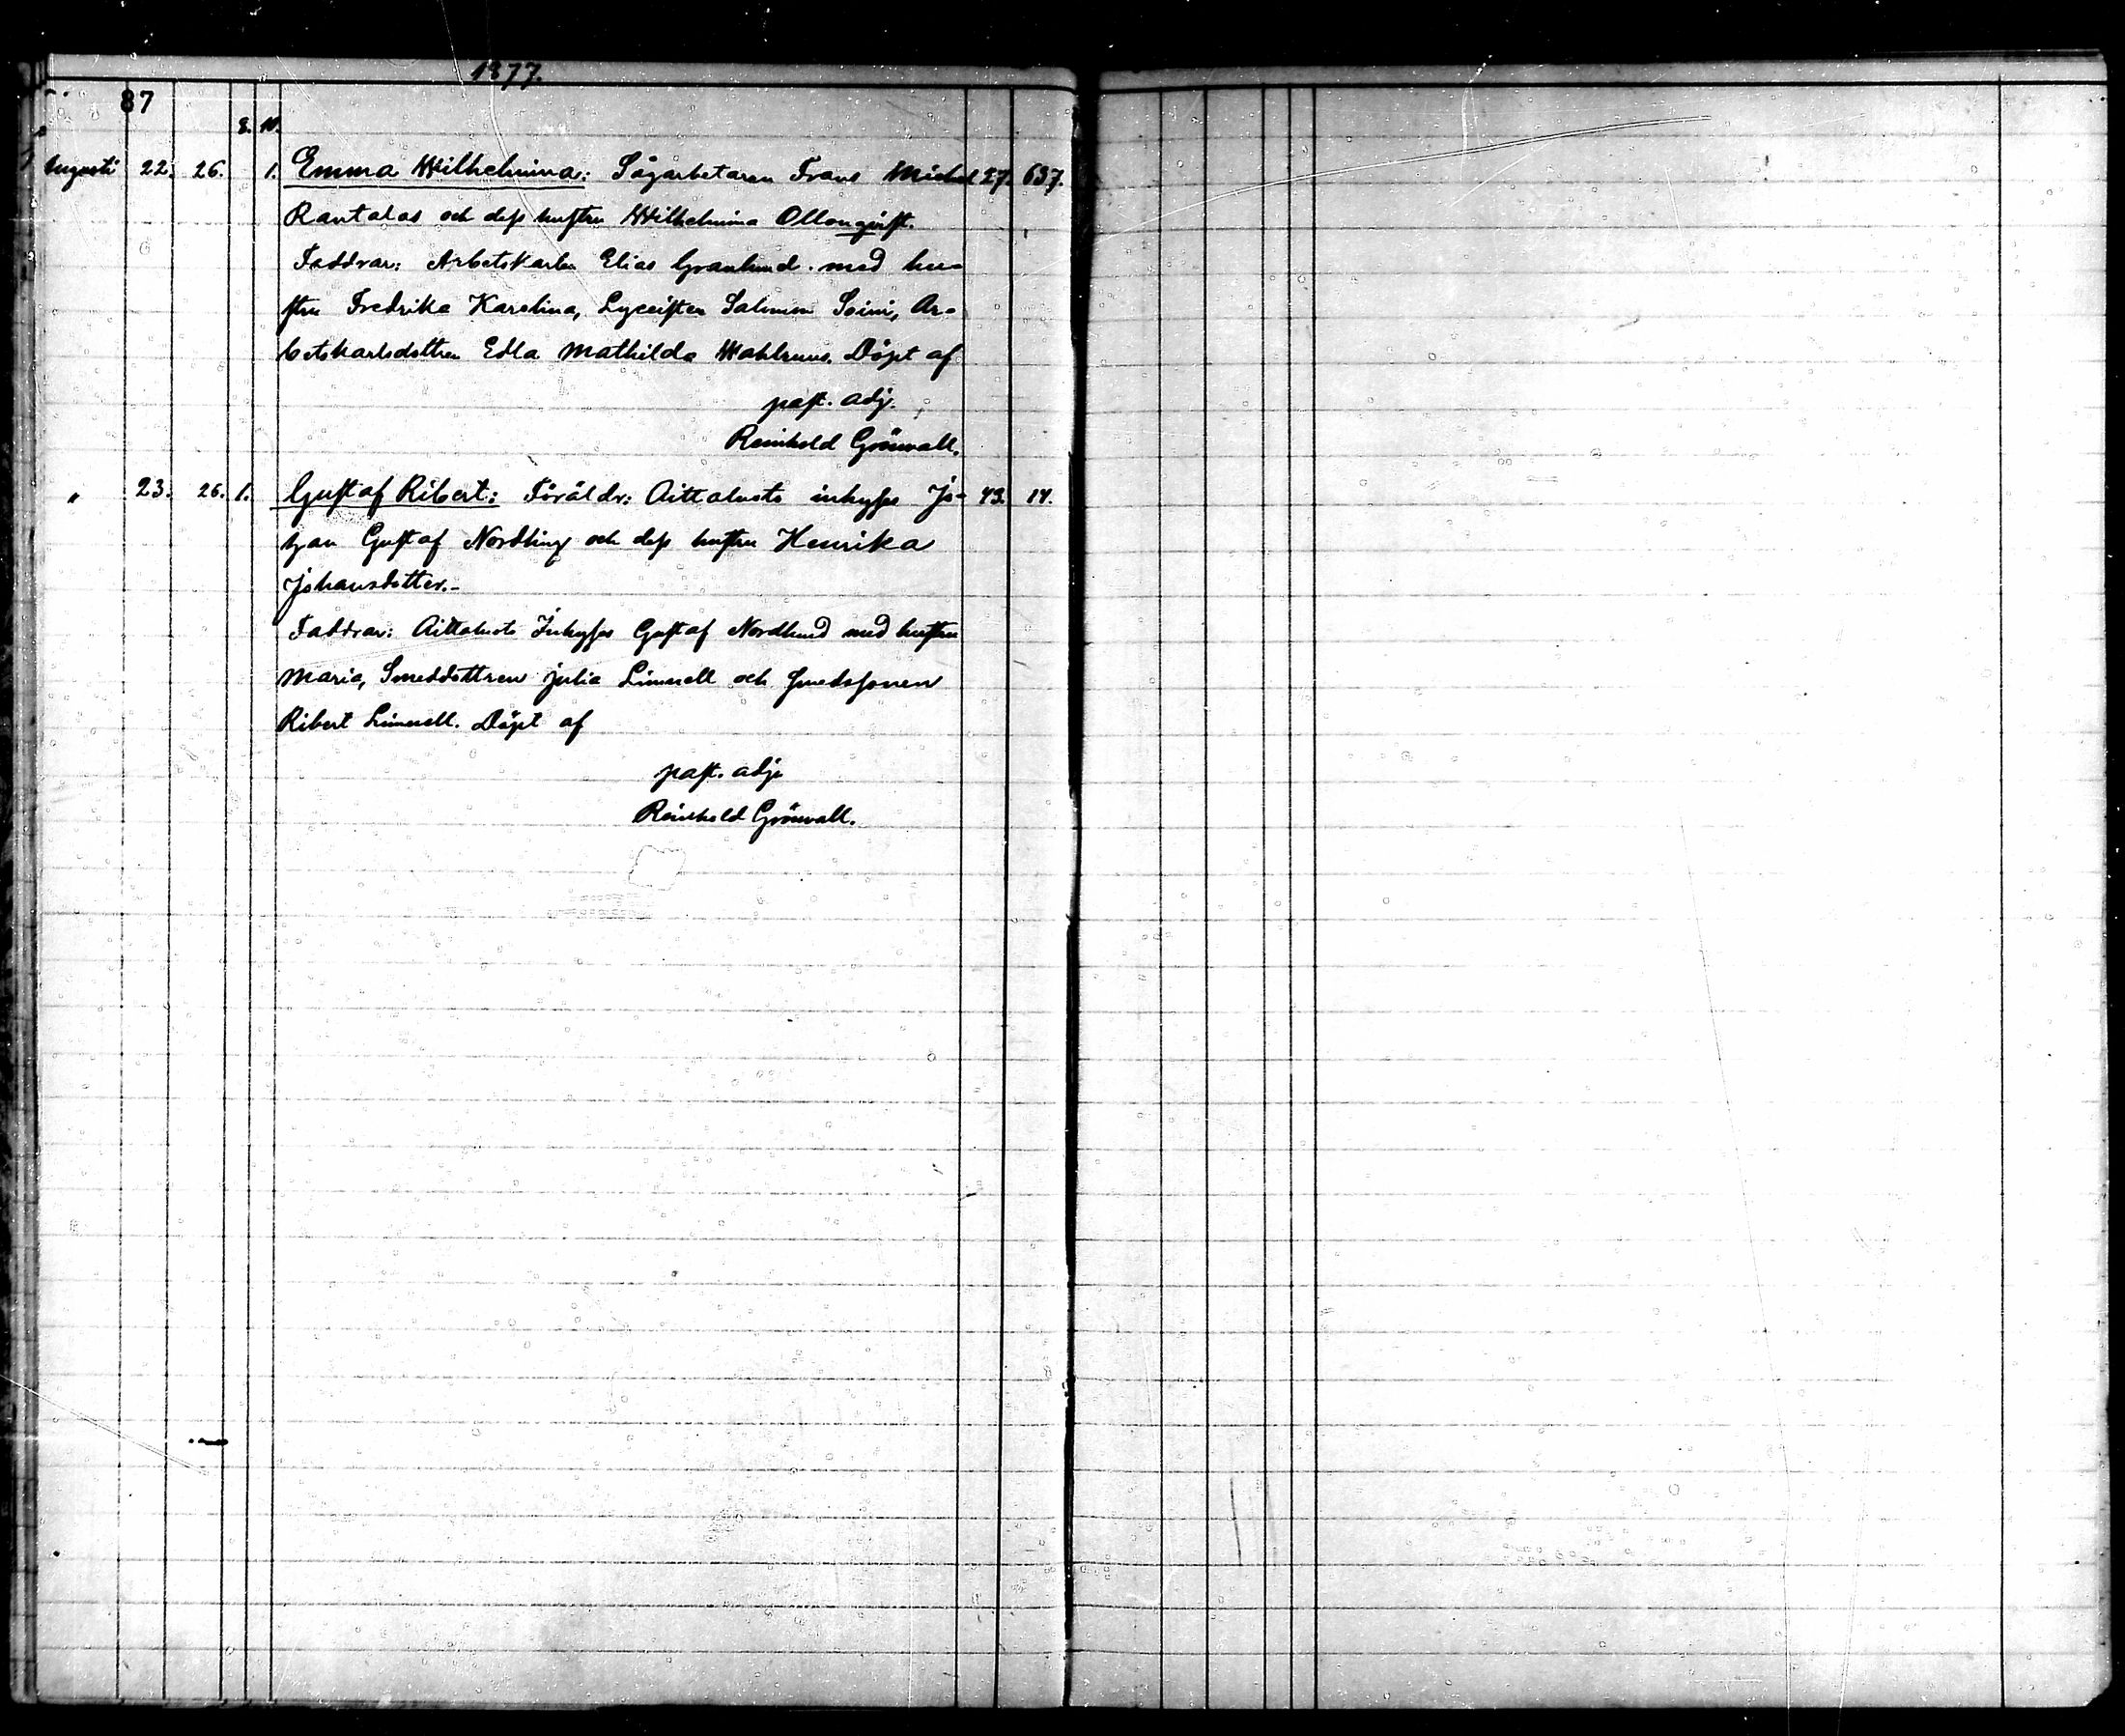 1877.
87
S. N.
Augusti 22. 26. 1. Emma Wilhelmina: Sågarbetaren Frans Michel 27. 637.
Rantalas och dess hustru Wilhelmina Ollonqvist.
Faddrar: Arbetskarlen Elias Granlund med hu-
stru Fredrika Karolina, Lyceisten Salomon Soini, Ar-
betskarlsdottren Edla Mathilda Wahlroos. Döpt af
past. adj.
Reinhold Grönvall.
" 23. 26. 1. Gustaf Ribert: Föräldr: Aittaluoto inhyses Jo- 43. 14.
han Gustaf Nordling och dess hustru Henrika
Johansdotter.-
Faddrar: Aittaluoto Inhyses Gustaf Nordlund med hustru
Maria, Smeddottren Julia Limnell och Smedssonen
Ribert Limnell. Döpt af
past. adj.
Reinhold Grönvall.